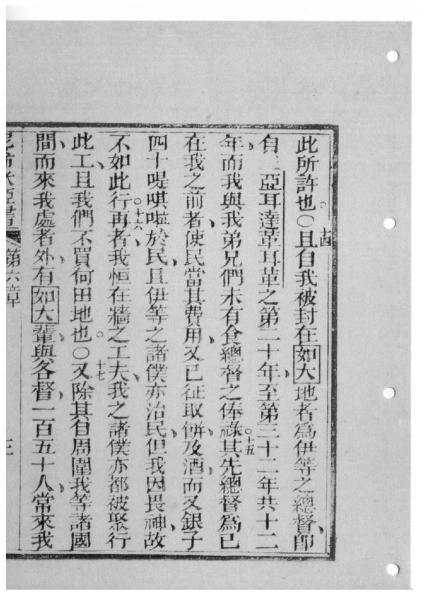 此所許也○十四且自我被封在如大地者為伊等之總督即
自二亞耳達革耳革之第二十年至第三十二年共十二
年而我與我弟兄們未有食總督之俸祿○十五其先總督為已
在我之前者使民當其費用又已征取餅及酒而又銀子
四十㖷㖮𠺝於民且伊等之諸僕亦治民但我因畏神故
不如此行○十六再者我恒在牆之工夫我之諸僕亦都被聚行
此工且我們不買何田地也○十七又除其自周圍我等諸國
間而來我處者外有如大輩與各督一百五十人常來我
第六章